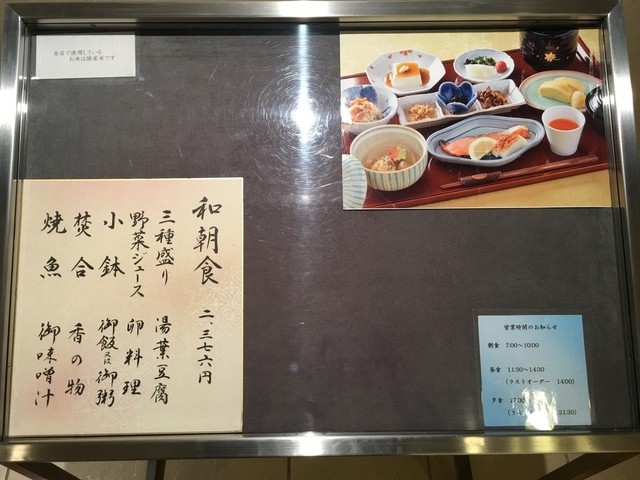 当店で使用している
お米は国産米です
和朝食 二、三七六円
三種盛り 湯葉豆腐
野菜ジュース 卵料理
小鉢 御飯又は御粥
焚合 香の物
焼魚 御味噌汁
営業時間のお知らせ
朝食 7:00~10:00
昼食 11:30~14:30
(ラストオーダー 14:00)
夕食
21:30)